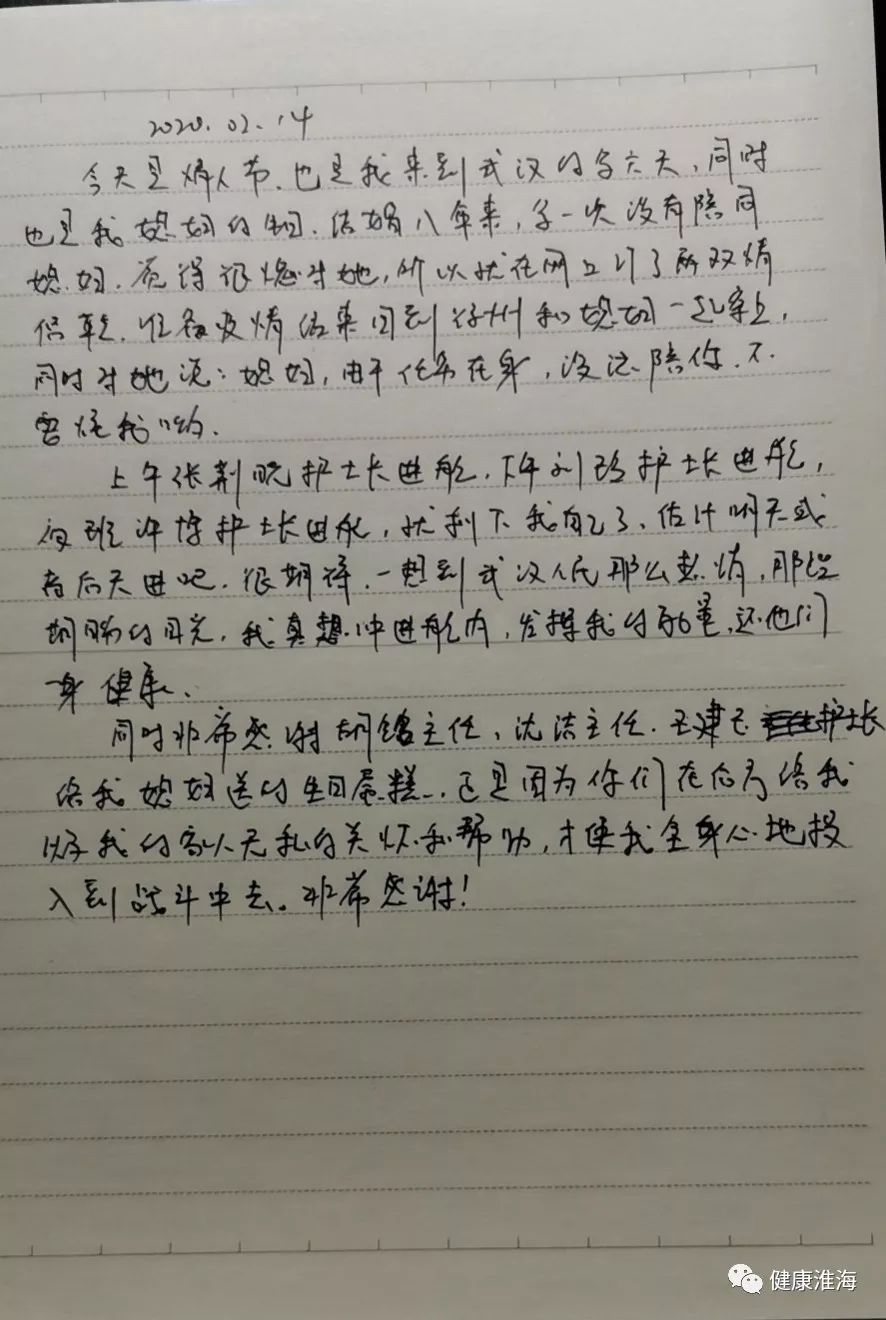 2020.02.14
今天是情人节、也是我来到武汉的第六天,同时
也是我媳妇的生日.结婚八年来,第一次没有陪同
媳妇.觉得很愧对她,所以就在网上订了两双情
侣鞋.准备疫情结束回到徐州和媳妇一起穿上,
同时对她说:媳妇,由于任务在身,没法陪你.不
要怪我哟.
上午张荆晓护士长进舱.下午刘玲护士长进舱,
夜班许博护士长进舱,就剩下我自己了、估计明天或
者后天进吧.很期待.一想到武汉人民那么热情,那些
期盼的目光,我真想冲进舱内,发挥我的能量,还他们
一身健康.
同时非常感谢胡主任、沈洁主任.护士长
给我媳妇送的生日蛋糕.正是因为你们在后方给我
以及我的家人无私的关怀和帮助,才使我全身心地投
入到战斗中去。非常感谢!
健康淮海